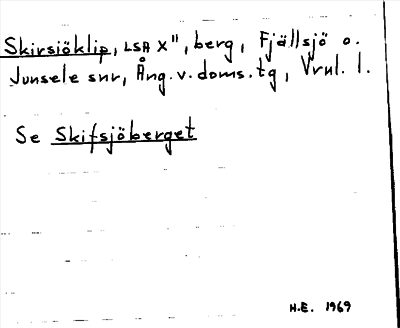 Skirsiöklip, LSA X", berg, Fjällsjö o.
Junsele snr, Ång.v.doms.tg, Vrnl. l.
Se Skifsjöberget
H.E. 1969